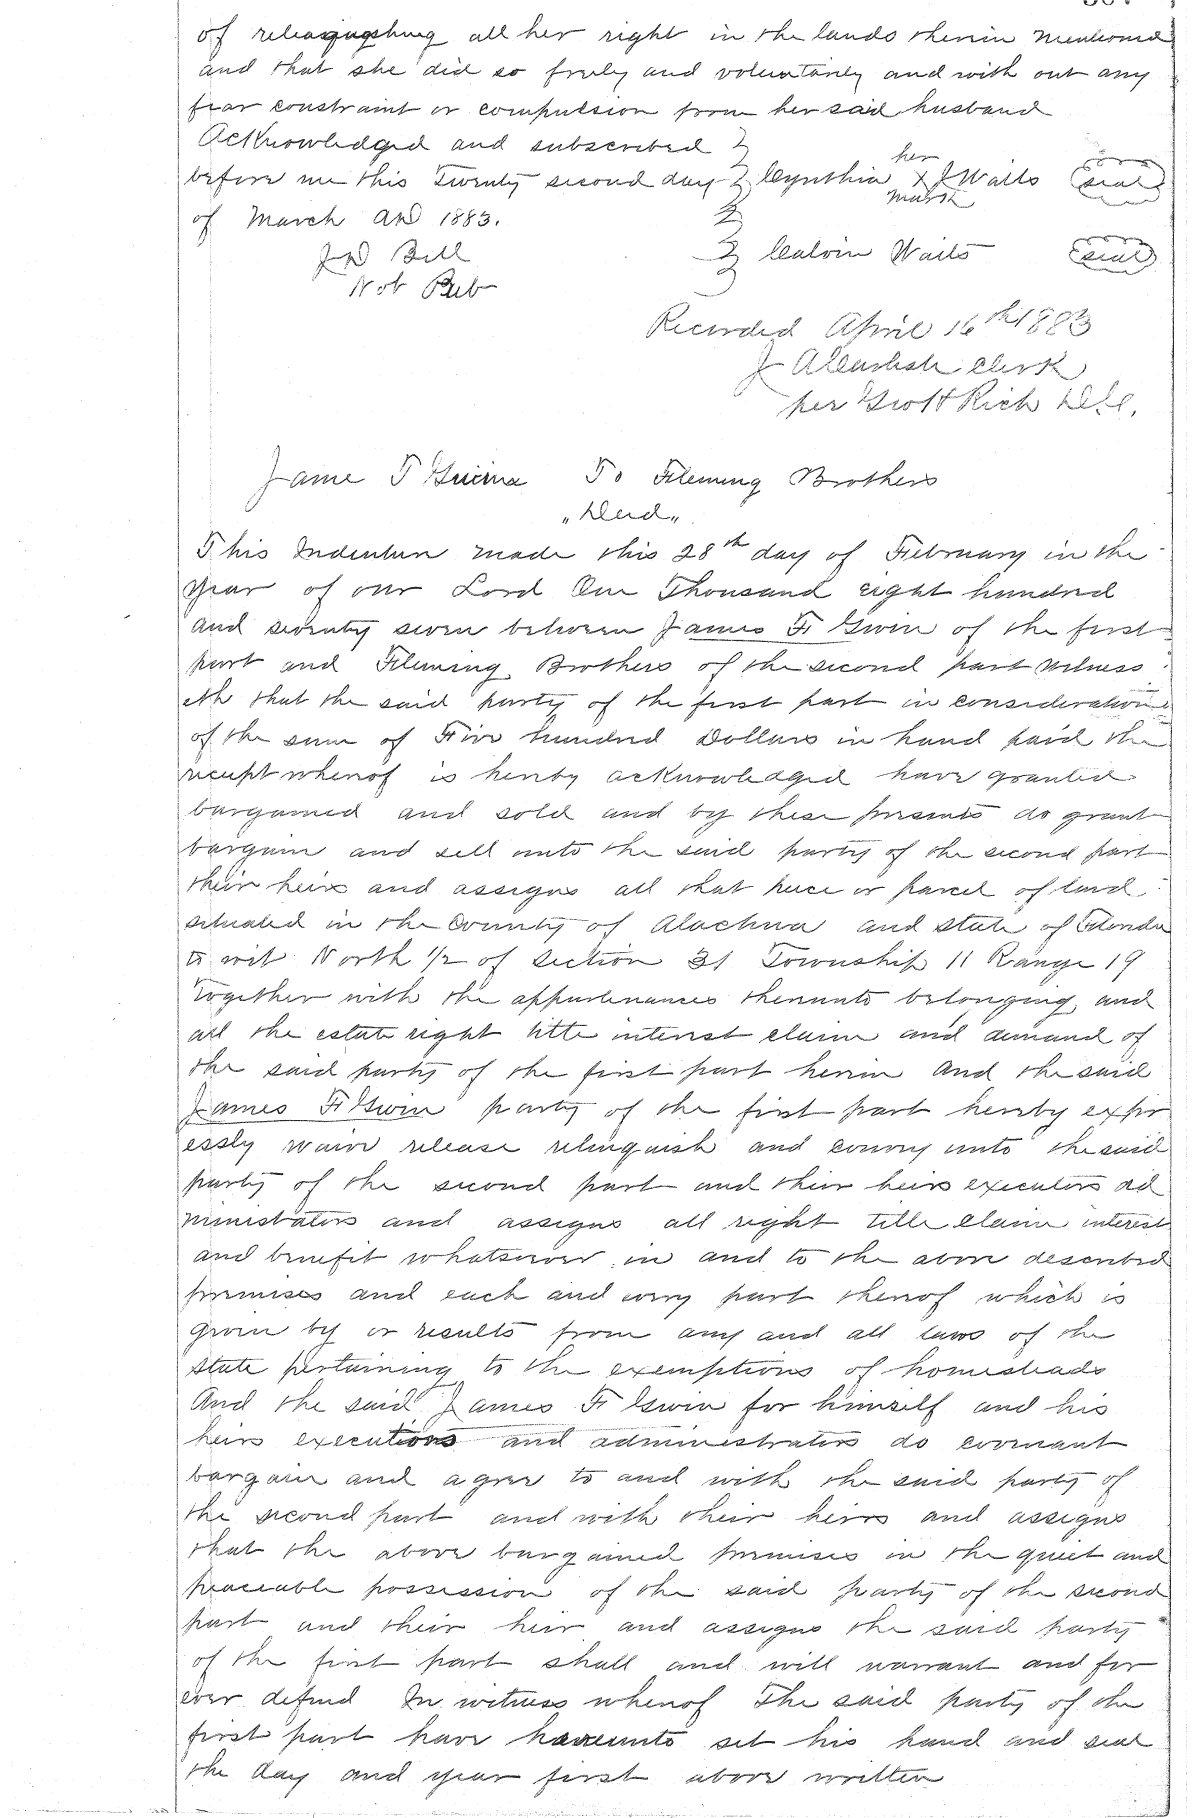 of releasquishing all her right in the lands therein mentioned
and that she did so freely and voluntarily and with out any
fear constraint or compulsion from her said husband
Acknowledged and subscribed
before me this Twenty second day
of March AD 1883.
her
Cynthia X J Waits seal
mark
Calvin Waits seal
J D Bell
Not Pub
Recorded April 16th 1883
J A Carlisle Clerk
per Scott Rich D.C.
Jame T To Fleming Brothers
"Deed"
This Indenture made this 28th day of February in the
year of our Lord One Thousand eight hundred
and seventy seven between James F Gwin of the first
part and Fleming Brothers of the second part witness
eth that the said party of the first part in consideration
of the sum of Five hundred Dollars in hand paid the
receipt whereof is hereby acknowledged have granted
bargained and sold and by these presents do grant
bargain and sell unto the said party of the second part
their heirs and assigns all that piece or parcel of land
situated in the County of Alachua and State of Florida
to wit North 1/2 of Section 31 Township 11 Range 19
Together with the appurtenances thereunto belonging and
all the estate right title interest claim and demand of
the said party of the first part herein And the said
James F Gwin party of the first part hereby expr
essly waive release relinquish and convey unto the said
party of the second part and their heirs executors ad
ministrators and assigns all right title claim interest
and benefit whatsoever in and to the above described
premises and each and every part thereof which is
given by or results from any and all laws of the
State pertaining to the exemptions of homesteads
And the said James F Gwin for himself and his
heirs executors and administrators do covenant
bargain and agree to and with the said party of
the second part and with their heirs and assigns
that the above bargained premises in the quiet and
peaceable possession of the said party of the second
part and their heir and assigns the said party
of the first part shall and will warrant and for
ever defend In witness whereof The said party of the
first part have hereunto set his hand and seal
the day and year first above written